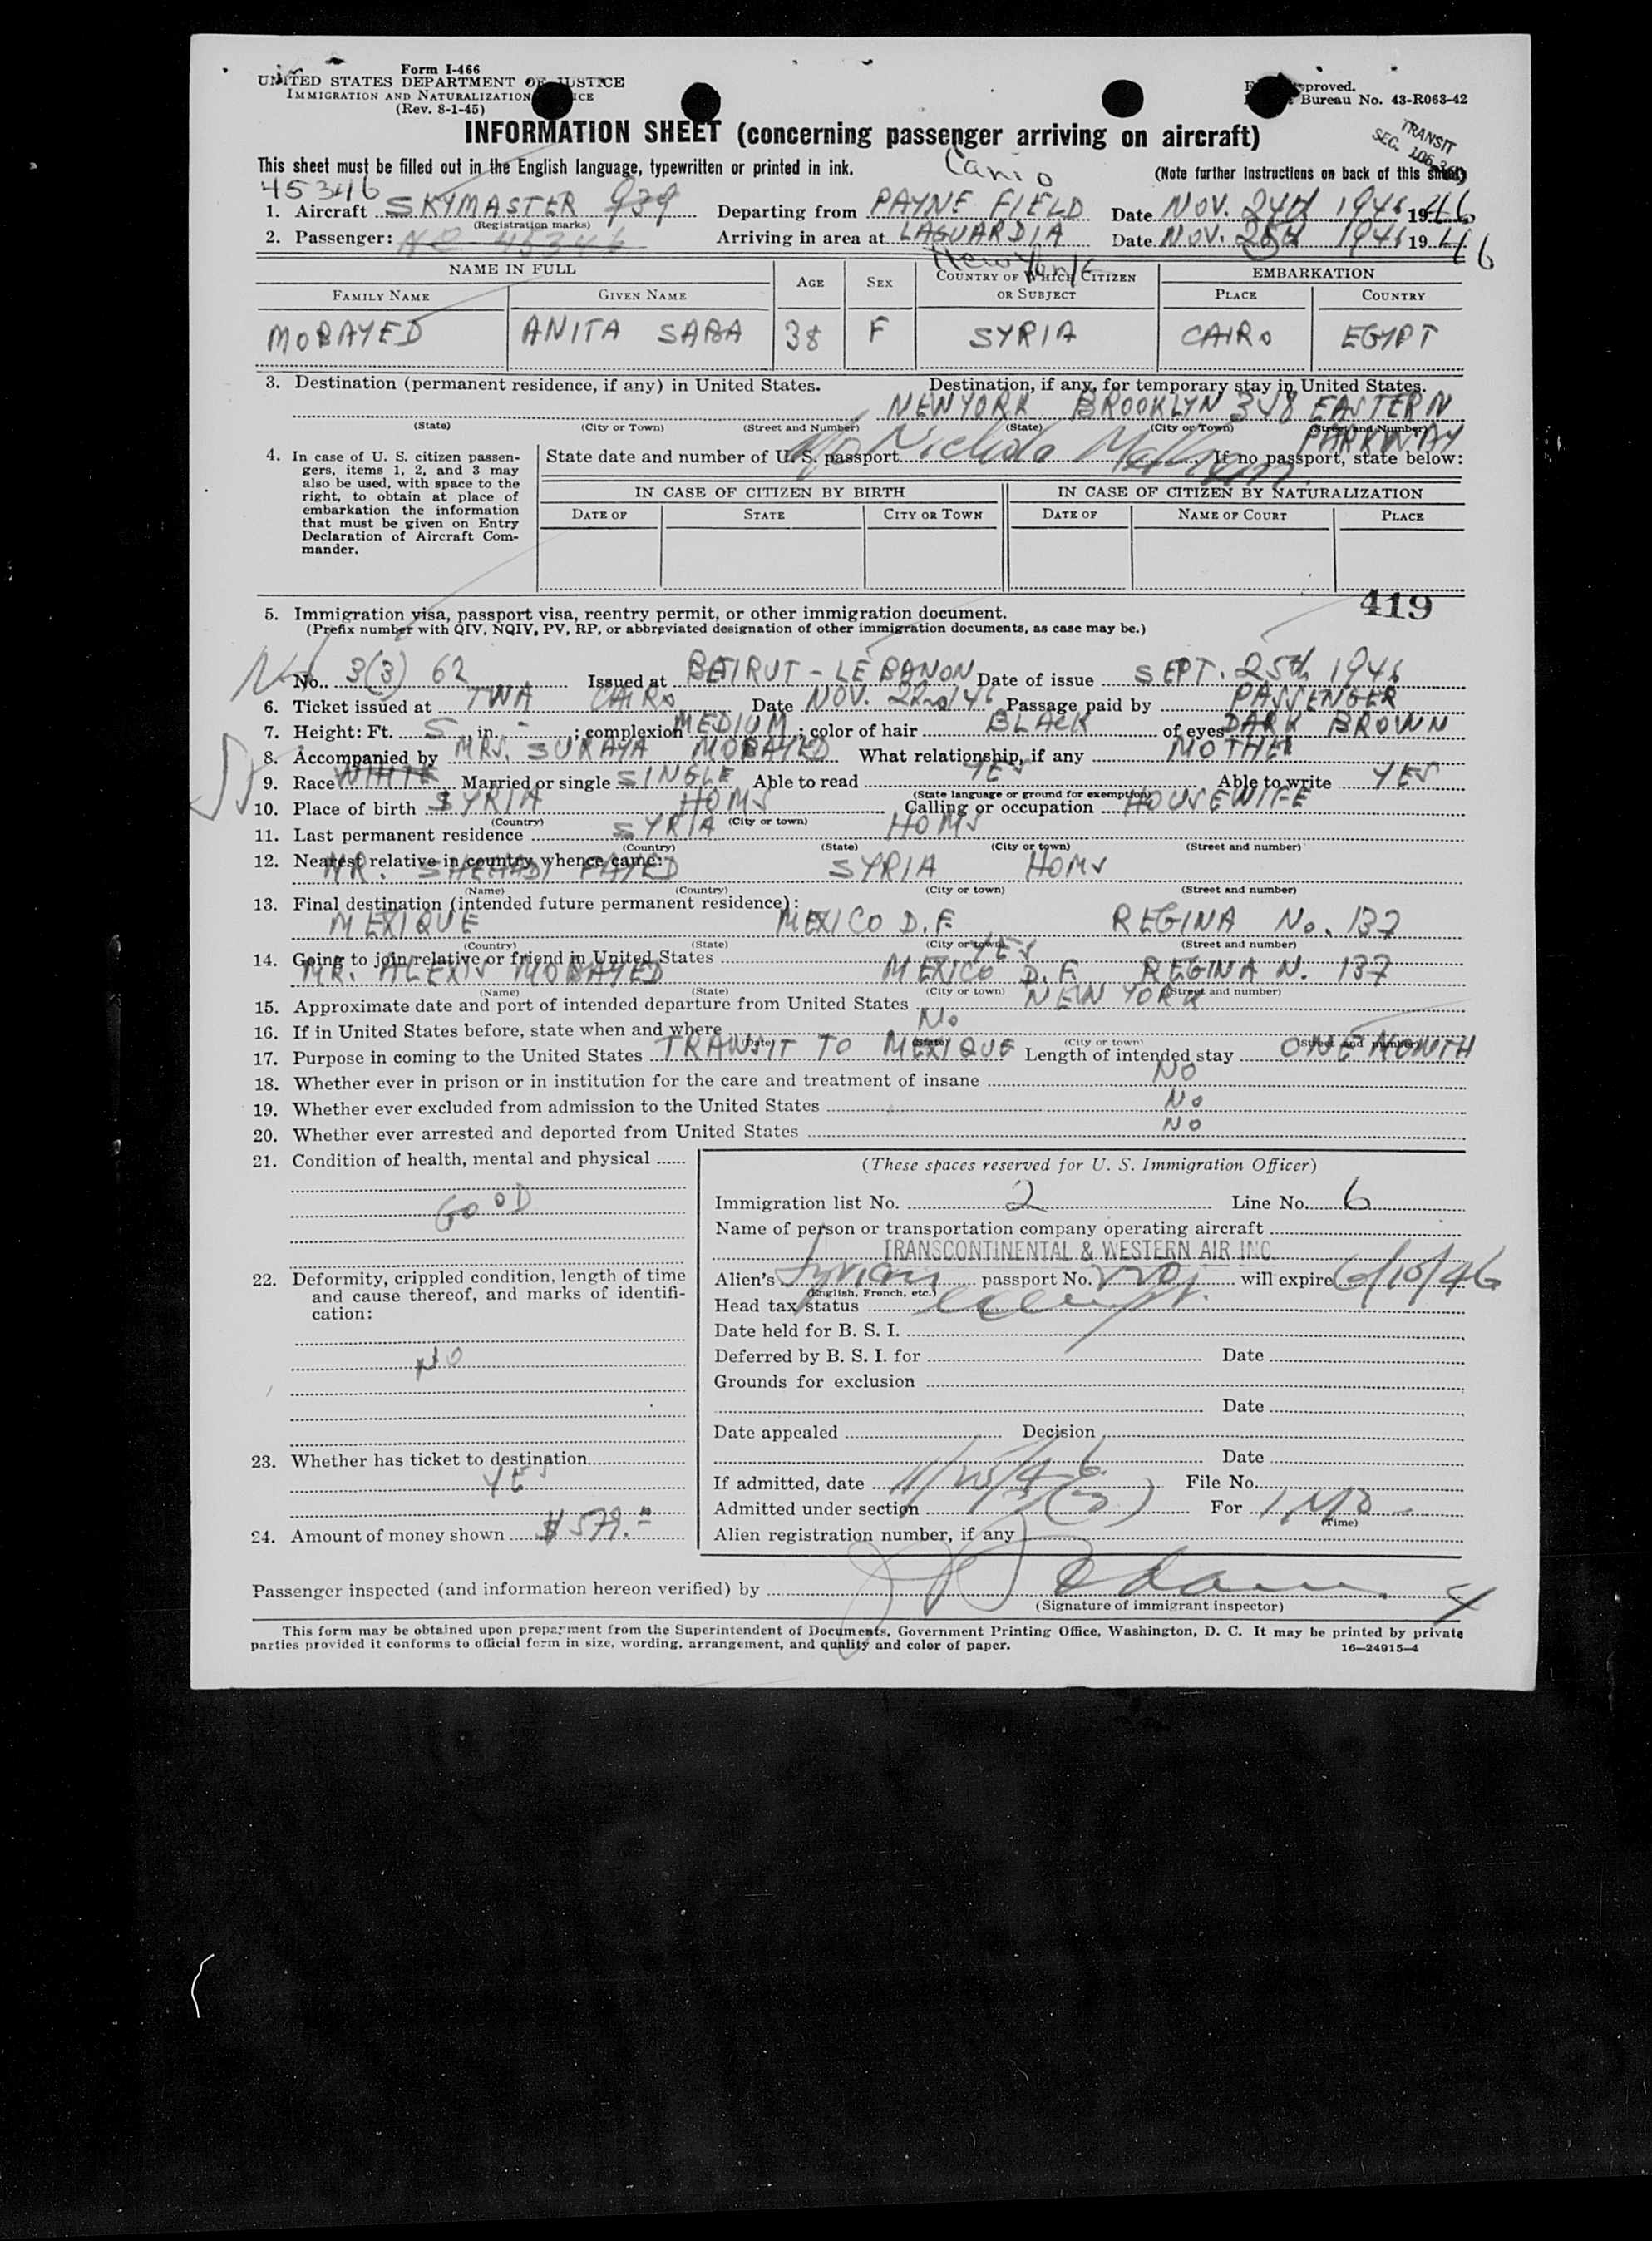 Form I-466
UNITED STATES DEPARTMENT OF JUSTICE
IMMIGRATION AND NATURALIZATION
(Rev. 8-1-45)
Bureau No. 43-R063-42
INFORMATION SHEET (concerning passenger arriving on aircraft)
TRANSIT
SEC.
This sheet must be filled out in the English language, typewritten or printed in ink.
(Note further instructions on back of this sheet)
45346
1. Aircraft SKYMASTER 939 Departing from PAYNE FIELD Date NOV. 24th 1946 1946
(Registration marks)
2. Passenger: NC 45346 Arriving in area at LAGUARDIA Date NOV. 1946 1946
New York
NAME IN FULL AGE SEX COUNTRY OF WHICH CITIZEN OR SUBJECT EMBARKATION
FAMILY NAME GIVEN NAME PLACE COUNTRY
MOBAYED ANITA SABA 38 F SYRIA CAIRO EGYPT
3. Destination (permanent residence, if any) in United States. Destination, if any, for temporary stay in United States.
NEW YORK BROOKLYN 348 EASTERN PARKWAY
(State) (City or Town) (Street and Number) (State) (City or Town) (Street and Number)
4. In case of U. S. citizen passengers, items 1, 2, and 3 may also be used, with space to the right, to obtain at place of embarkation the information that must be given on Entry Declaration of Aircraft Commander.
State date and number of U. S. passport If no passport, state below:
IN CASE OF CITIZEN BY BIRTH IN CASE OF CITIZEN BY NATURALIZATION
DATE OF STATE CITY OR TOWN DATE OF NAME OF COURT PLACE
419
5. Immigration visa, passport visa, reentry permit, or other immigration document.
(Prefix number with QIV, NQIV, PV, RP, or abbreviated designation of other immigration documents, as case may be.)
No. 3(3) 62 Issued at BEIRUT - LEBANON Date of issue SEPT. 25th 1946
6. Ticket issued at TWA CAIRO Date NOV. 22nd 46 Passage paid by PASSENGER
7. Height: Ft. 5, in. - ; complexion MEDIUM; color of hair BLACK of eyes DARK BROWN
8. Accompanied by MRS. SURAYA MOBAYED What relationship, if any MOTHER
9. Race WHITE Married or single SINGLE Able to read YES Able to write YES
(State language or ground for exemption)
10. Place of birth SYRIA HOMS Calling or occupation HOUSEWIFE
(Country) (City or town)
11. Last permanent residence SYRIA HOMS
(Country) (State) (City or town) (Street and number)
12. Nearest relative in country whence came:
MR. SHEHADI FAYED SYRIA HOMS
(Name) (Country) (City or town) (Street and number)
13. Final destination (intended future permanent residence):
MEXIQUE MEXICO D.F. REGINA No. 137
(Country) (State) (City or town) (Street and number)
14. Going to join relative or friend in United States YES
MR. ALEXIS MOBAYED MEXICO D.F. REGINA N. 137
(Name) (State) (City or town) (Street and number)
15. Approximate date and port of intended departure from United States NEW YORK
16. If in United States before, state when and where No
(Date) (State) (City or town) (Street and number)
17. Purpose in coming to the United States TRANSIT TO MEXIQUE Length of intended stay ONE MONTH
18. Whether ever in prison or in institution for the care and treatment of insane NO
19. Whether ever excluded from admission to the United States No
20. Whether ever arrested and deported from United States NO
21. Condition of health, mental and physical
GOOD
22. Deformity, crippled condition, length of time and cause thereof, and marks of identification:
NO
23. Whether has ticket to destination
YES
24. Amount of money shown $579.
(These spaces reserved for U. S. Immigration Officer)
Immigration list No. 2 Line No. 6
Name of person or transportation company operating aircraft
TRANSCONTINENTAL & WESTERN AIR INC.
Alien's Syrian passport No. will expire 6/10/46
(English, French, etc.)
Head tax status exempt.
Date held for B. S. I.
Deferred by B. S. I. for Date
Grounds for exclusion
Date
Date appealed Decision
Date
If admitted, date 11/25/46 File No.
Admitted under section 3(3) For 1 MO
(Time)
Alien registration number, if any
Passenger inspected (and information hereon verified) by
(Signature of immigrant inspector)
This form may be obtained upon prepayment from the Superintendent of Documents, Government Printing Office, Washington, D. C. It may be printed by private
parties provided it conforms to official form in size, wording, arrangement, and quality and color of paper.
16—24915-4